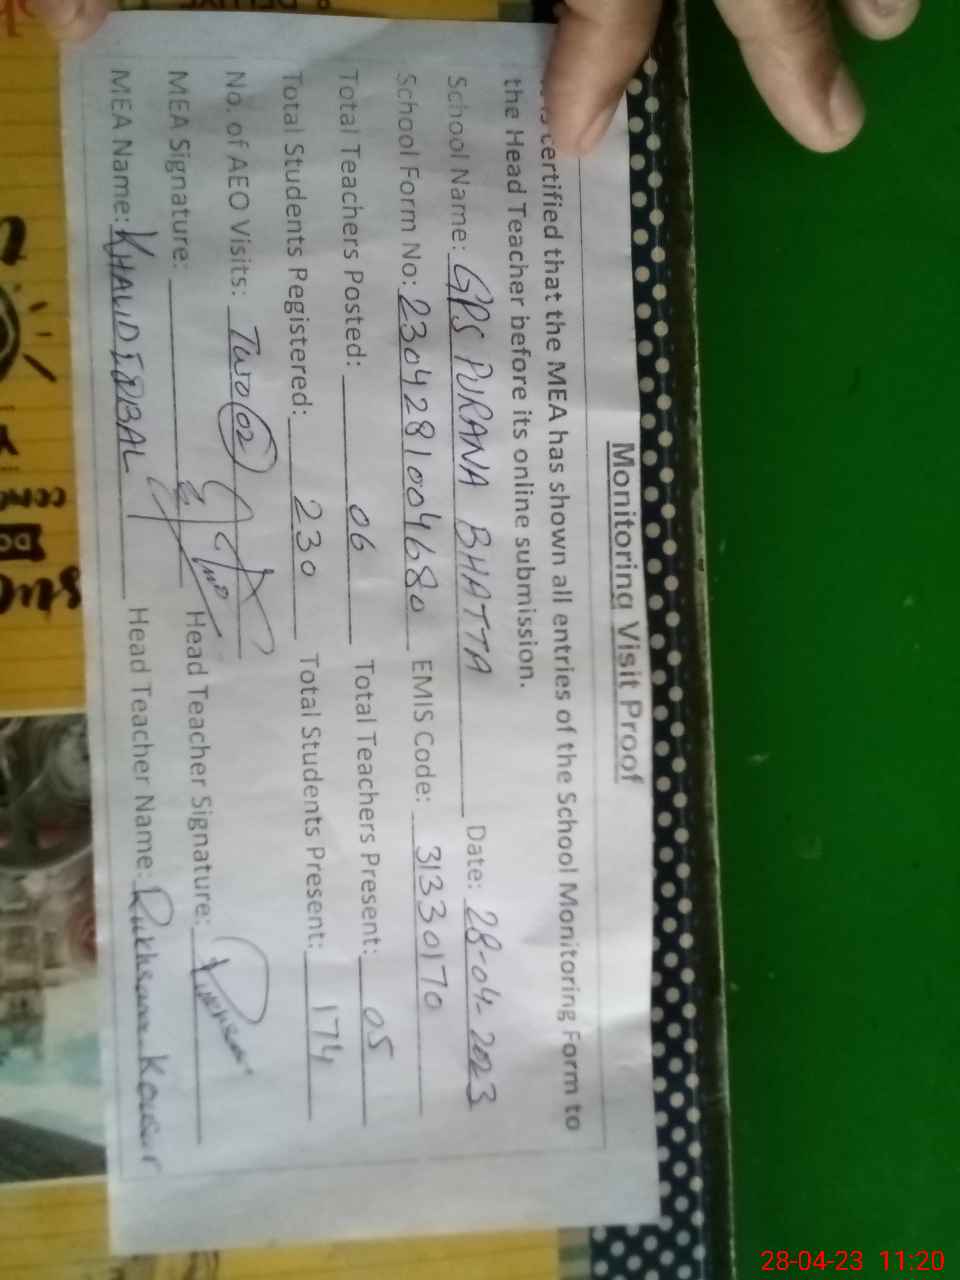 Monitoring Visit Proof
certified that the MEA has shown all entries of the School Monitoring Form to
the Head Teacher before its online submission.
School Name: GPS PURANA BHATTA Date: 28-04-2023
School Form No: 2304281004680 EMIS Code: 31330170
Total Teachers Posted: 06 Total Teachers Present: 05
Total Students Registered: 230 Total Students Present: 174
No. of AEO Visits: Two (02)
MEA Signature: Head Teacher Signature:
MEA Name: KHALID IQBAL Head Teacher Name: Rukhsana Kousar
28-04-23 11:20